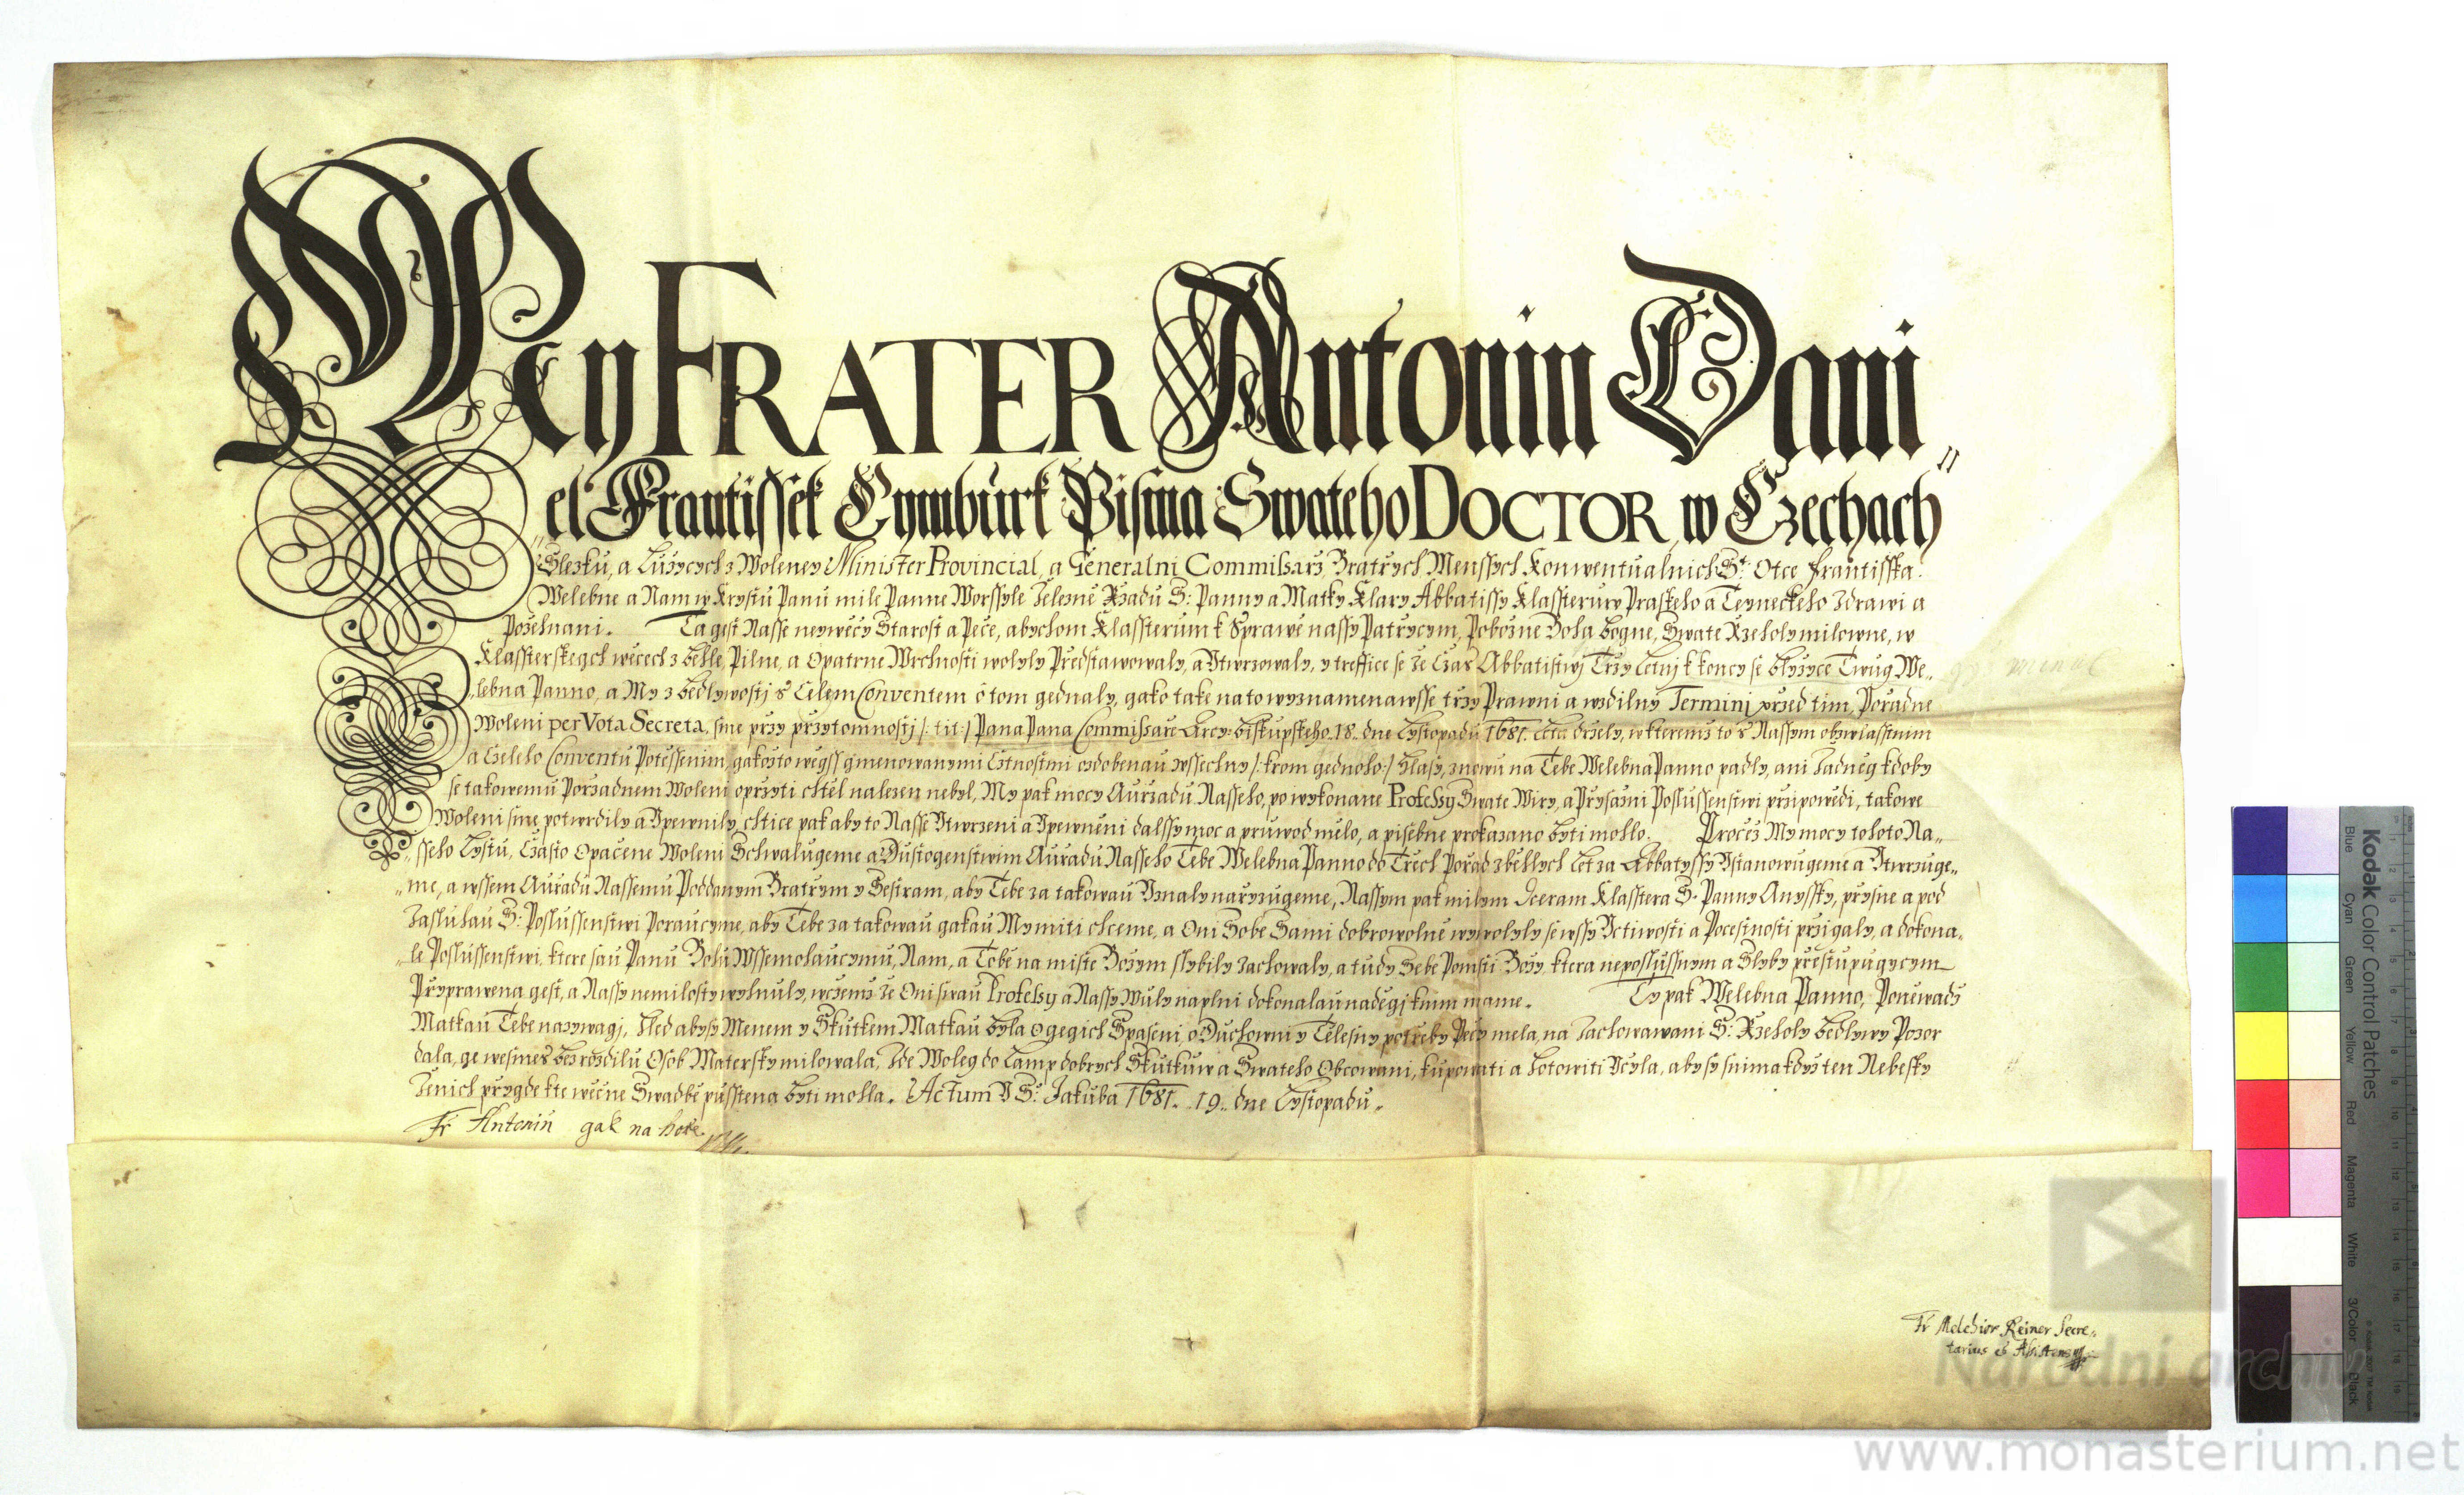 My FRATER Antonin Dani„
„el Frantissek Cymburk Pisma Swateho DOCTOR, w Czechach
Slezku, a Luzycych z Woleney Minister Provincial, a Generalni Commissarz Bratrzych Menssych Konwentualnich St: Otce Frantisska.
Welebne a Nam w Krystu Panu mile Panne Worssyle Zelezne Rzadu S: Panny a Matky Klary Abbatissy Klassteruw Praskeho a Teyneckeho Zdrawi a
Pozehnani. Ta gest Nasse neywěcy Starost a Peče, abychom Klassterum k Sprawě nassy Patřycym, Pobozne Boha bogne, Swate Rzeholy milowne, w
Klasstersskegch wěcech z běhle, Pilne, a Opatrne Wrchnosti wolyly Předstawowaly, a Vtwrzowaly, y treffice se že Czas Abbatistwj Trzy Letnj k koncy se blyzyce Twug We„
„lebna Panno, a My z bedlywostj s Celem Conventem o tom gednaly, gako take na to wyznamenawsse trzy Prawni a wzdilny Terminj przed tim, Pořadne
Woleni per Vota Secreta, sme przy przytomnostj /: tit: / Pana Pana Commissare Arcy-biskupskeho 18. dne Lystopadu 1681. Leta drzely, w kteremz to s Nassym obzwlasstnim
a Czeleho Conventu Potěssenim, gakozto wegss gmenowanymi Cztnostmi ozdobenau wssechny /: krom gednoho :/ Hlasy, znowu na Tebe Welebna Panno padly, ani Zadnég kdoby
se takowemu Porzadnem Woleni oprzyti chtěl nalezen nebyl, My pak mocy Aurzadu Nasseho, po wykonane Professy Swate Wiry, a Przysazni Poslussenstwi przipowědi, takowe
Woleni sme potwrdily a Vpewnily, chtice pak aby to Nasse Vtwrzeni a Vpewnění dalssy moc a pruwod mělo, a pisebne prokazano byti mohlo. Procěž My mocy tohoto Na„
„sseho Lystu, Czasto Opačene Woleni Schwalugeme a Dustogenstwim Auřadu Nasseho Tebe Welebna Panno do Třech Pořad zběhlych Let za Abbatyssy Vstanowugeme a Vtwrzuge„
„me, a wssem Auřadu Nassemu Poddanym Bratrzym y Sestram, aby Tebe za takowau Vznaly nařyzugeme, Nassym pak milym Dceram Klasstera S. Panny Anyssky, přysne a pod
Zasluhau S: Poslussenstwi Poraucyme, aby Tebe za takowau gakau My miti chceme, a Oni Sobe Sami dobrowolně wywolyly se wssy Vctiwosti a Pocestnosti przigaly, a dokona„
„le Poslussenstwi, ktere sau Panu Bohu Wssemohaucymu, Nam, a Tobě na miste Bozym slybily Zachowaly, a tudy Sebe Pomsti Bozy, ktera neposlussnym a Slyby přestupugycym
Přyprawena gest, a Nassy nemilosty wyhnuly, wczemž že Oni swau Professy a Nassy Wuly naplni dokonalau naděgj k nim mame. Ty pak Welebna Panno, Poněwadž
Matkau Tebe nazywagj, hled abysy Menem y Skutkem Matkau byla o gegich Spaseni, o Duchowni y Tělesny potřeby Pečy mela, na Zachowawani S: Rzeholy bedlywy Pozor
dala, ge wesmes bez rozdilu Osob Matersky milowala, Zde Woleg do Lamp dobrych Skutkuw a Swateho Obcowani, kupowati a hotowiti Vcyla, abysy snima kdyz ten Nebesky
Ženich przygde k te wěčne Swadbě pusstena byti mohla. Actum V S: Jakuba 1681. 19. dne Lystopadu.
Fr Antonin gak na hoře
Fr Melchior Reiner Secre„
tarius et Assistens
Národní archiv
www.monasterium.net
Kodak Color Control Patches
Blue Cyan Green Yellow Red Magenta White 3/Color Black